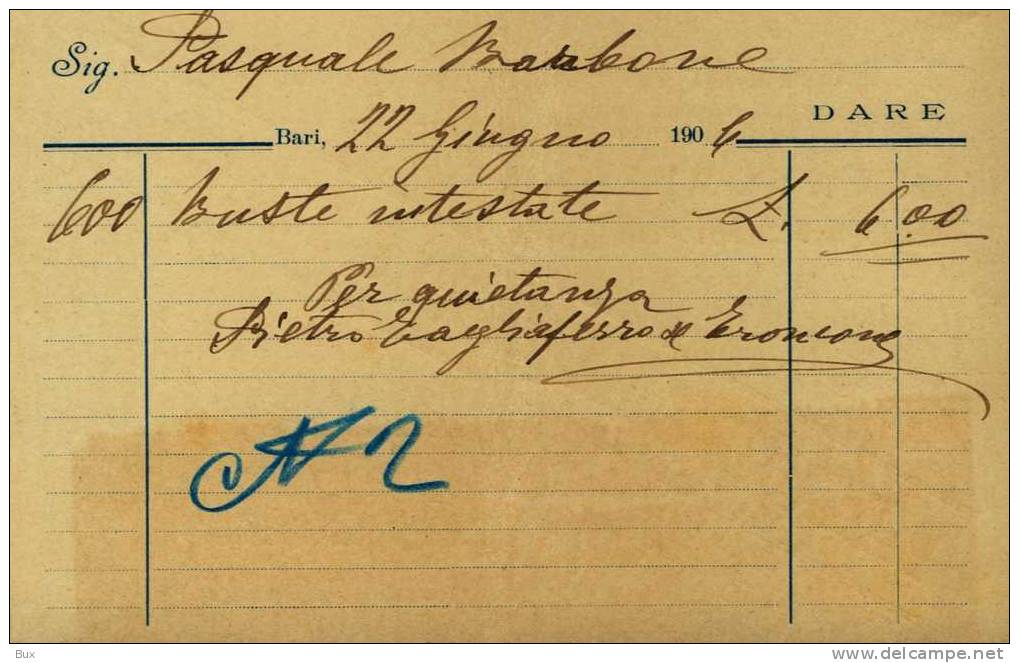 Sig. Pasquale Barbone
DARE
Bari, 22 Giugno 1906
600 Buste intestate L. 6.00
Per quietanza
Pietro Tagliaferro
Bux
www.delcampe.net